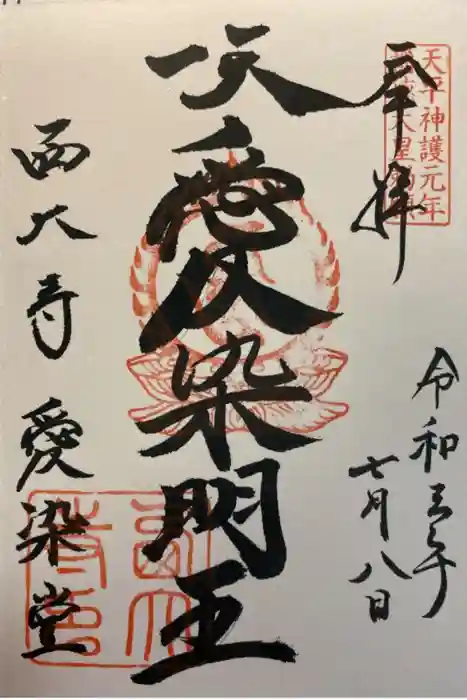 天平神護元年
天皇勅願
奉拝
令和三年
七月八日
愛染明王
西大寺 愛染堂